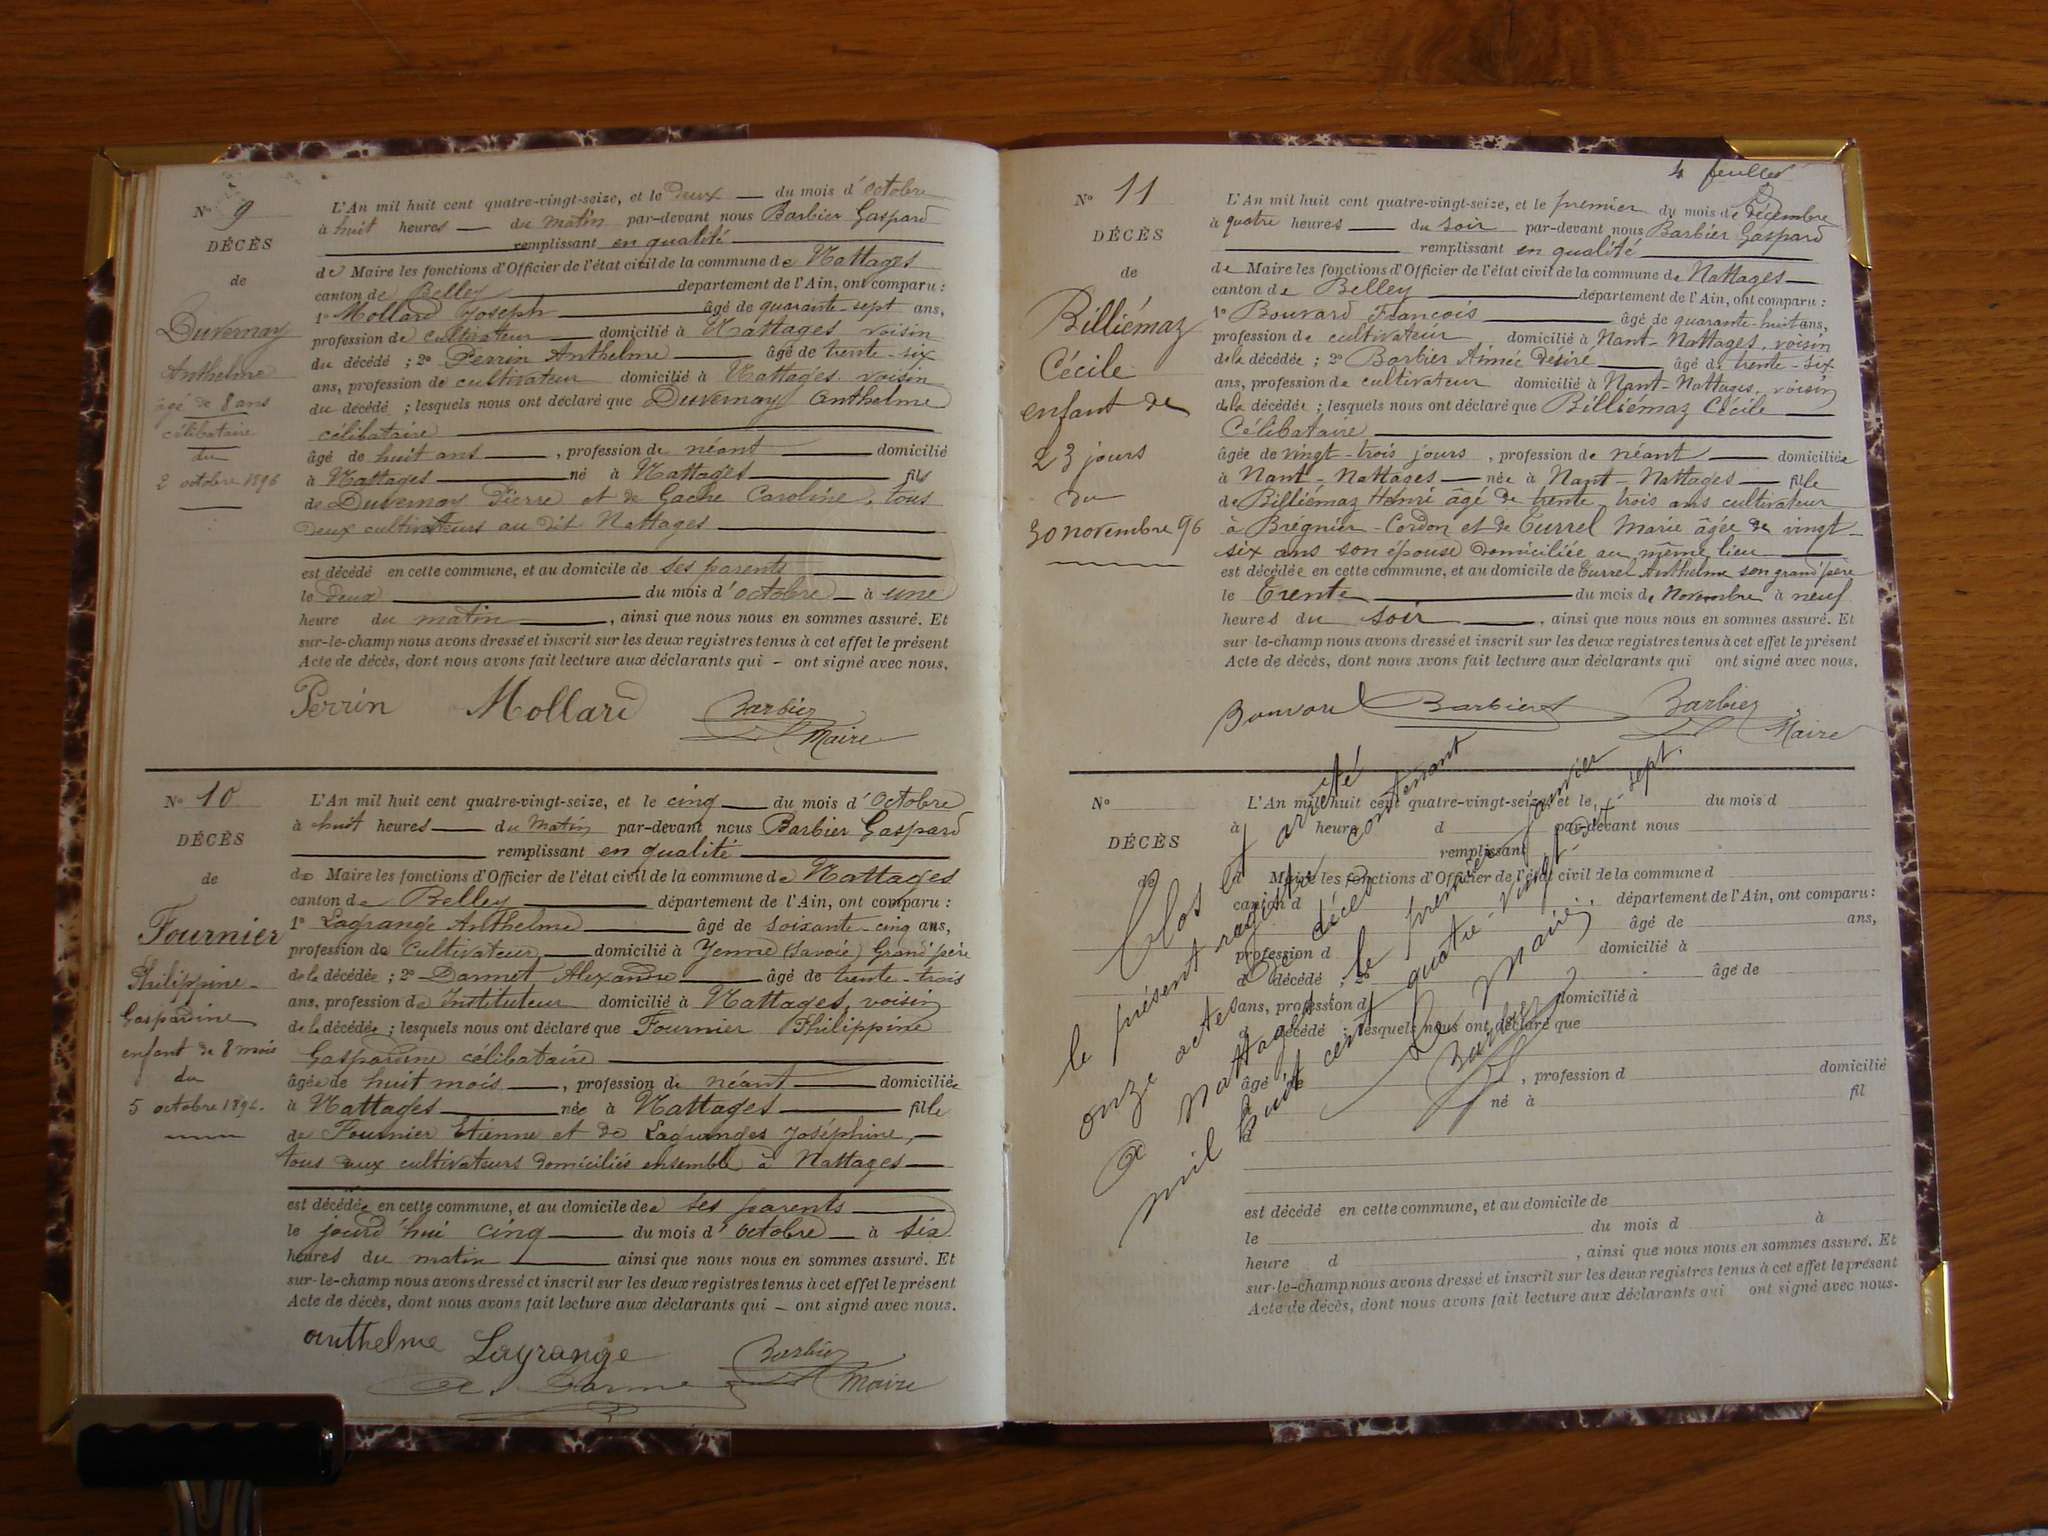 N° 9
DÉCÈS
de
Duvernay
Anthelme
âgé de 8 ans
célibataire
du
2 octobre 1896
L'An mil huit cent quatre-vingt-seize, et le deux du mois d'octobre
à huit heures du matin par-devant nous Barbier Gaspard
remplissant en qualité
de Maire les fonctions d'Officier de l'état civil de la commune de Nattages
canton de Belley département de l'Ain, ont comparu :
1° Mollard Joseph âgé de quarante-sept ans,
profession de cultivateur domicilié à Nattages voisin
du décédé ; 2° Perrin Anthelme âgé de trente-six
ans, profession de cultivateur domicilié à Nattages voisin
du décédé ; lesquels nous ont déclaré que Duvernay Anthelme
célibataire
âgé de huit ans , profession de néant domicilié
à Nattages né à Nattages fils
de Duvernay Pierre et de Gache Caroline, tous
deux cultivateurs au dit Nattages
est décédé en cette commune, et au domicile de ses parents
le deux du mois d'octobre à une
heure du matin , ainsi que nous nous en sommes assuré. Et
sur-le-champ nous avons dressé et inscrit sur les deux registres tenus à cet effet le présent
Acte de décès, dont nous avons fait lecture aux déclarants qui – ont signé avec nous.
Perrin Mollard Barbier
Maire
N° 10
DÉCÈS
de
Fournier
Philippine
Gaspardine
enfant de 8 mois
du
5 octobre 1896.
L'An mil huit cent quatre-vingt-seize, et le cinq du mois d'Octobre
à huit heures du Matin par-devant nous Barbier Gaspard
remplissant en qualité
de Maire les fonctions d'Officier de l'état civil de la commune de Nattages
canton de Belley département de l'Ain, ont comparu :
1° Lagrange Anthelme âgé de soixante-cinq ans,
profession de Cultivateur domicilié à Yenne (Savoie) Grand'père
de la décédée ; 2° Dammet Alexandre âgé de trente-trois
ans, profession de Instituteur domicilié à Nattages, voisin
de la décédée ; lesquels nous ont déclaré que Fournier Philippine
Gaspardine célibataire
âgée de huit mois , profession de néant domiciliée
à Nattages née à Nattages fille
de Fournier Etienne et de Lagranges Joséphine,
tous aux cultivateurs domiciliés ensemble à Nattages
est décédée en cette commune, et au domicile de ses parents
le jourd'hui cinq du mois d'octobre à six
heures du matin ainsi que nous nous en sommes assuré. Et
sur-le-champ nous avons dressé et inscrit sur les deux registres tenus à cet effet le présent
Acte de décès, dont nous avons fait lecture aux déclarants qui – ont signé avec nous.
anthelme Lagrange Barbier
Maire
4 feuilles
N° 11
DÉCÈS
de
Billiémaz
Cécile
enfant de
23 jours
du
30 novembre 96
L'An mil huit cent quatre-vingt-seize, et le premier du mois de décembre
à quatre heures du soir par-devant nous Barbier Gaspard
remplissant en qualité
de Maire les fonctions d'Officier de l'état civil de la commune de Nattages
canton de Belley département de l'Ain, ont comparu :
1° Bouvard François âgé de quarante-huit ans,
profession de cultivateur domicilié à Nant-Nattages, voisin
de la décédée ; 2° Barbier Aimée Désiré âgé de trente-six
ans, profession de cultivateur domicilié à Nant-Nattages, voisin
de la décédée ; lesquels nous ont déclaré que Billiémaz Cécile
Célibataire
âgée de vingt-trois jours , profession de néant domiciliée
à Nant-Nattages née à Nant-Nattages fille
de Billiémaz Henri âgé de trente-trois ans cultivateur
à Brégnier-Cordon et de Currel Marie âgée de vingt-
six ans son épouse domiciliée au même lieu
est décédée en cette commune, et au domicile de Currel Anthelme son grand'père
le trente du mois de Novembre à neuf
heures du soir , ainsi que nous nous en sommes assuré. Et
sur-le-champ nous avons dressé et inscrit sur les deux registres tenus à cet effet le présent
Acte de décès, dont nous avons fait lecture aux déclarants qui ont signé avec nous.
Bouvard Barbier Barbier
Maire
N°
DÉCÈS
de
L'An mil huit cent quatre-vingt-seize, et le du mois d
à heure d par-devant nous
remplissant
d Maire les fonctions d'Officier de l'état civil de la commune d
canton d département de l'Ain, ont comparu :
1° âgé de ans,
profession d domicilié à
d décédé ; 2° âgé de
ans, profession d domicilié à
d décédé ; lesquels nous ont déclaré que
âgé de , profession d domicilié
à né à fil
d
est décédé en cette commune, et au domicile de
le du mois d à
heure d , ainsi que nous nous en sommes assuré. Et
sur-le-champ nous avons dressé et inscrit sur les deux registres tenus à cet effet le présent
Acte de décès, dont nous avons fait lecture aux déclarants qui ont signé avec nous.
Clos et arrêté
le présent registre contenant
onze actes de décès
A Nattages le premier janvier
mil huit cent quatre-vingt-dix-sept.
Le Maire,
Barbier